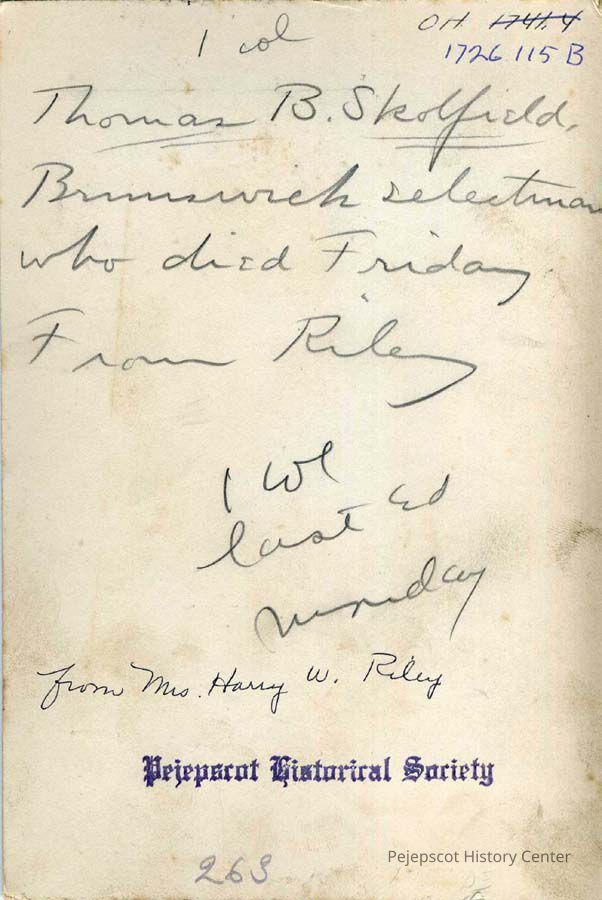 OH 1741.4
1 col
1726.115 B
Thomas B. Skolfield,
Brunswick selectman
who died Friday
From Riley
1 col
last Ed
Monday
from Mrs. Harry W. Riley
Pejepscot Historical Society
263
Pejepscot History Center